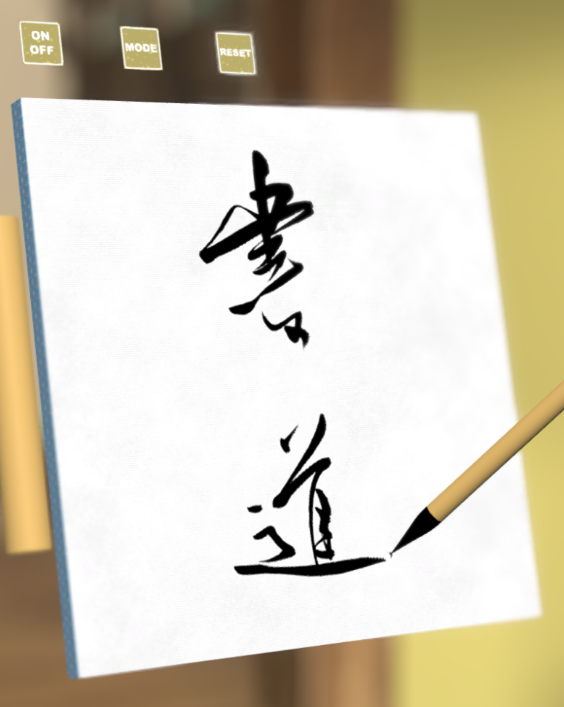 ON
OFF
MODE
RESET
書
道